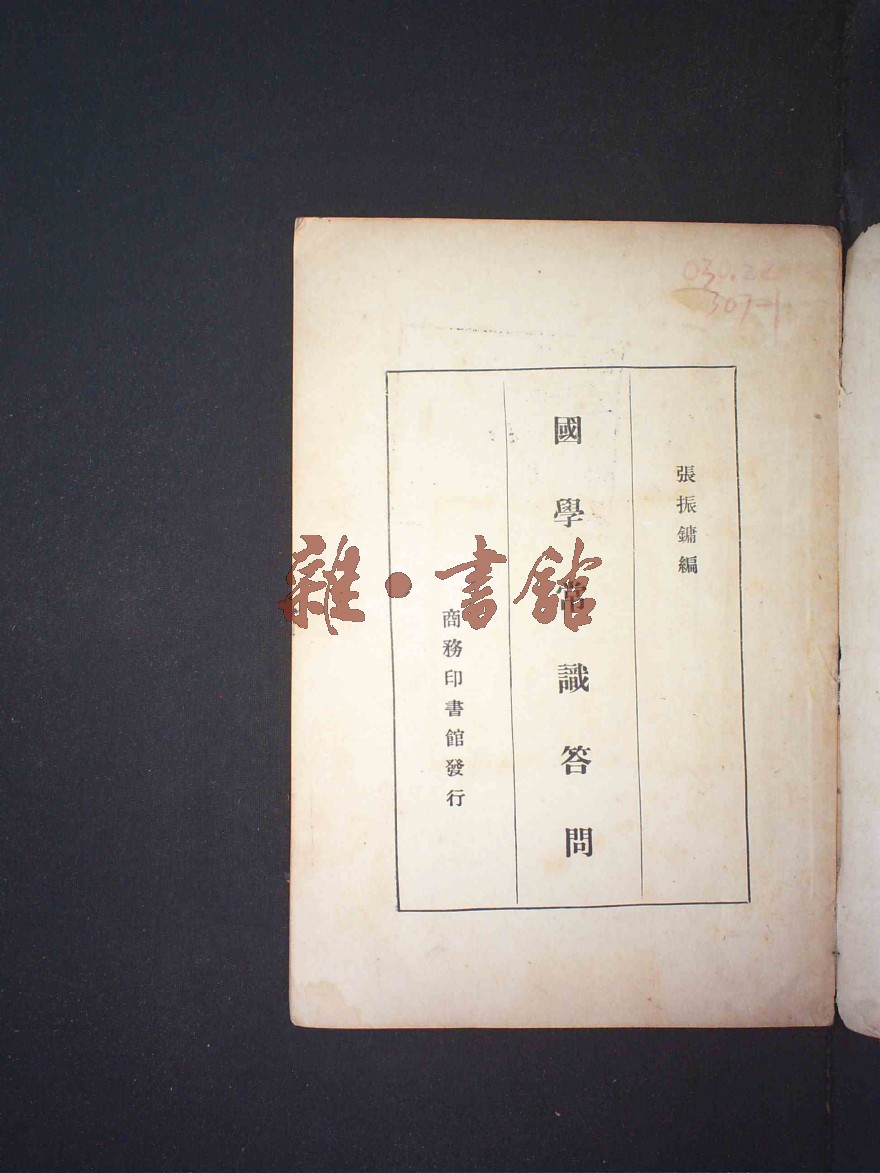 030.22
307-1
張振鏞編
國學常識答問
商務印書館發行
雜·書館